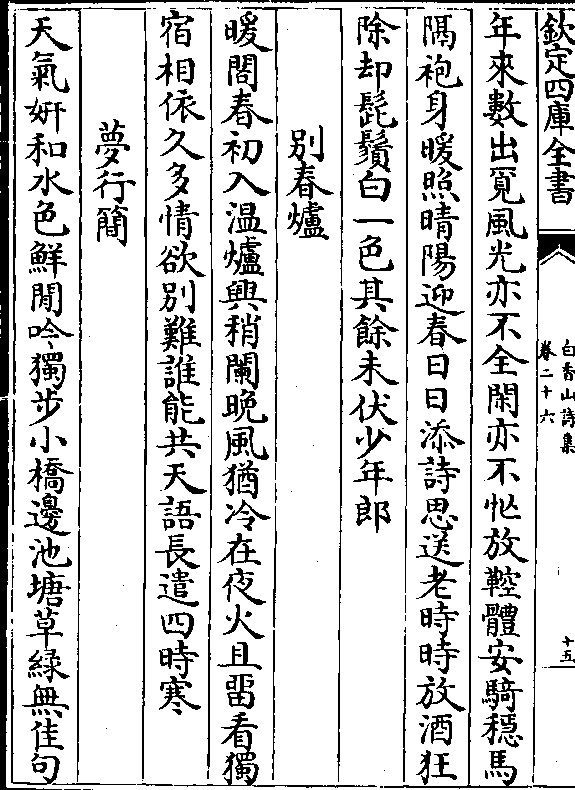 欽定四庫全書
白香山詩集
卷二十六
十五
年來數出覓風光亦不全閑亦不忙放鞚體安騎穩馬
隔袍身暖照晴陽迎春日日添詩思送老時時放酒狂
除却髭鬚白一色其餘未伏少年郎
別春爐
暖閤春初入温爐興稍闌晚風猶冷在夜火且留看獨
宿相依久多情欲別難誰能共天語長遣四時寒
夢行簡
天氣妍和水色鮮閒吟獨步小橋邊池塘草緑無佳句